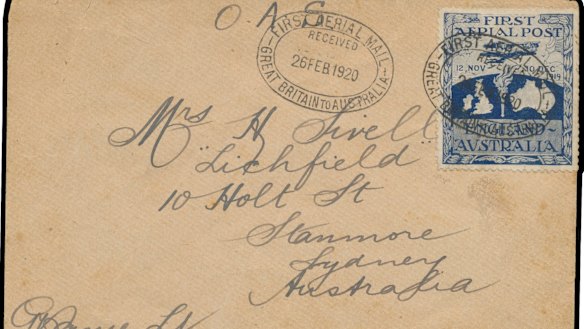 O A S
FIRST AERIAL MAIL
RECEIVED
26 FEB 1920
GREAT BRITAIN TO AUSTRALIA
FIRST
AERIAL POST
12 NOV
DEC
1919
ENGLAND
AUSTRALIA
FIRST AERIAL
RECEIVED
1920
GREAT BRITAIN
Mrs H Sivell
"Lichfield
10 Holt St
Stanmore
Sydney
Australia